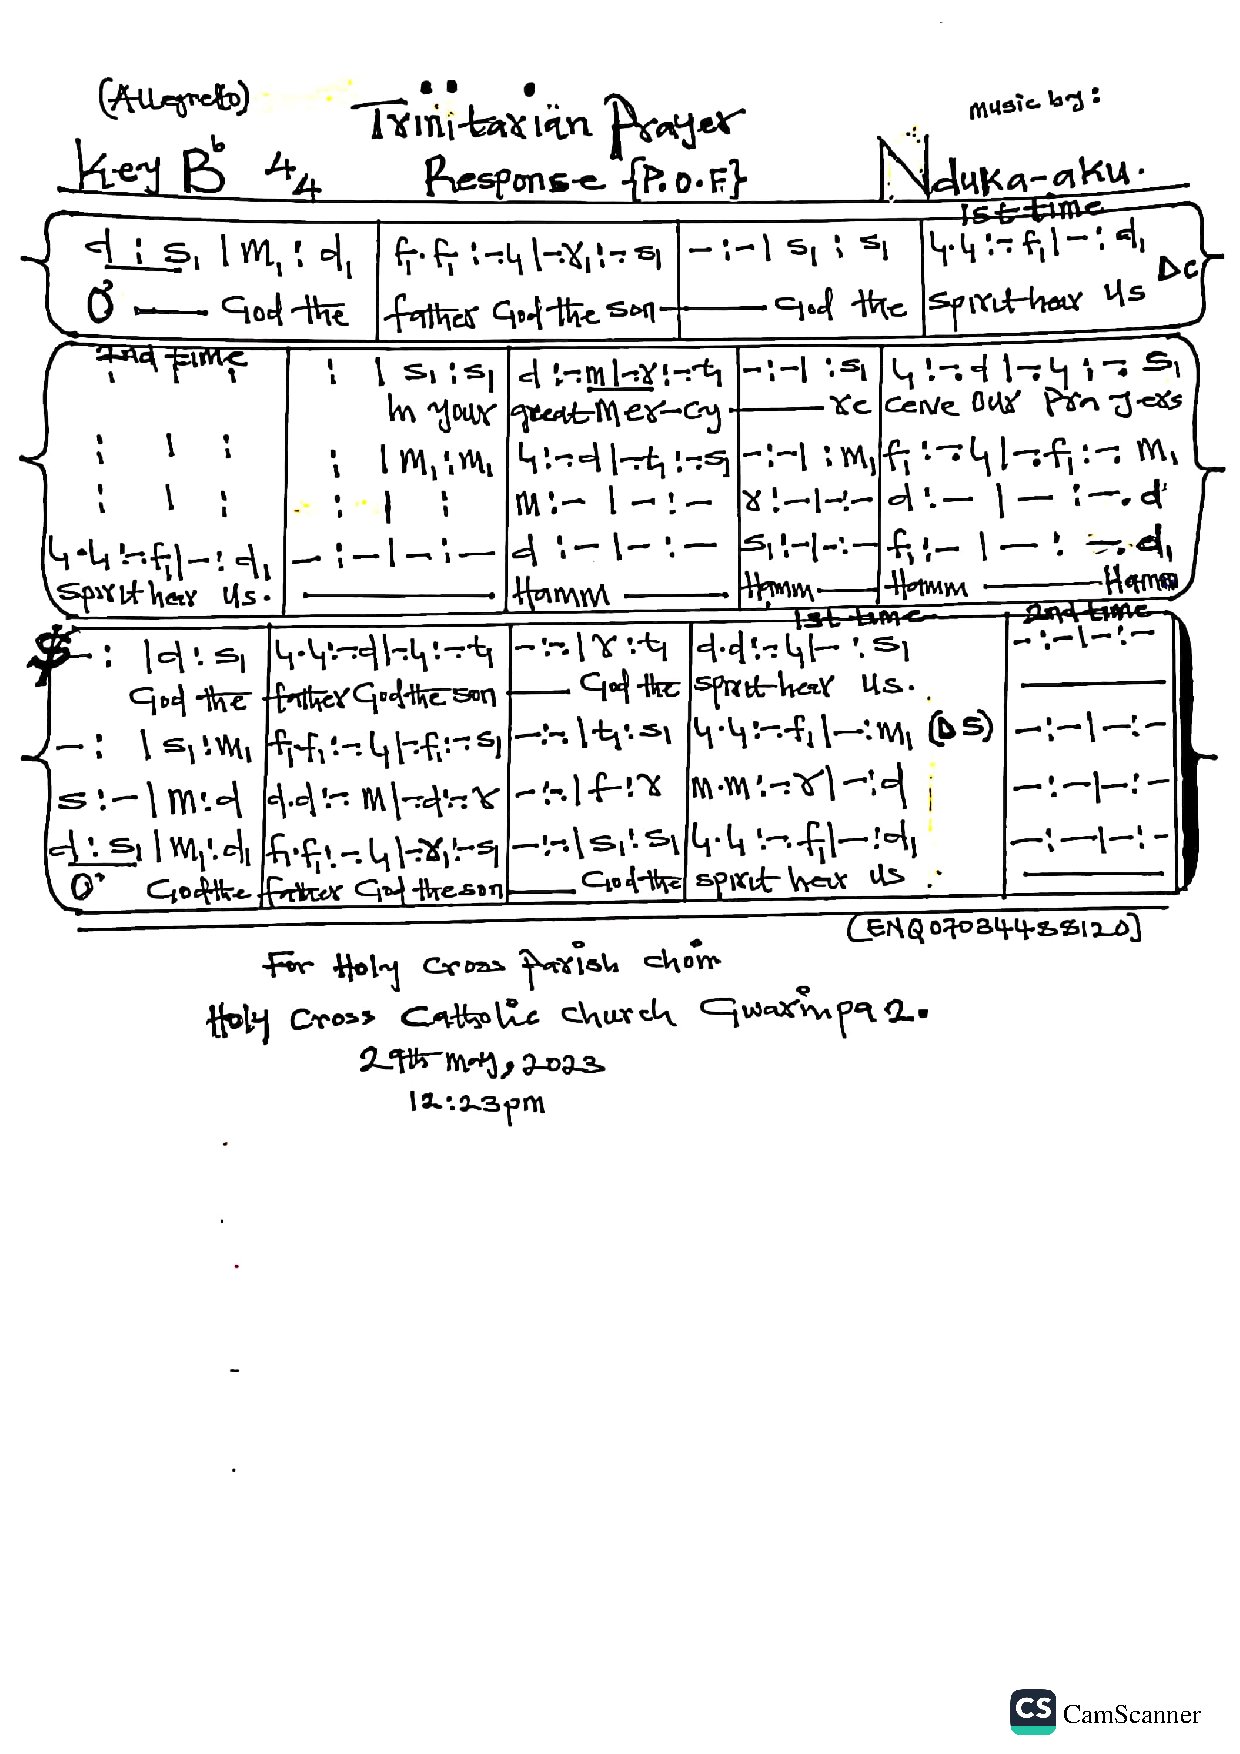 (Allegreto)
Trinitarian Prayer
music by:
Key B♭ 4/4
Response {P.O.F}
Nduka-aku.
1st time
d : s₁ | m₁ : d₁ | f₁.f₁ :-.l₁ |-.r₁ :-.s₁ | - : - | s₁ : s₁ | l₁.l₁ :-.f₁ | - : d₁ DC
O God the father God the son God the spirit hear Us
2nd time
: | : | : | s₁ : s₁ | d :-.m |-.r :-.t₁ | - : - | : s₁ | l₁ :-.d |-.l₁ :-. s₁
In your great Mer-cy re ceive Our Prayers
: | : | : | m₁ : m₁ | l₁ :-.d |-.t₁ :-.s₁ | - : - | : m₁ | f₁ :-.l₁ |-.f₁ :-. m₁
: | : | : | : | m : - | - : - | r : - | - : - | d : - | - : -. d
l₁.l₁ :-.f₁ | - : d₁ | - : - | - : - | d : - | - : - | s₁ : - | - : - | f₁ : - | - : -. d₁
spirit hear Us. Hamm Hamm Hamm Hamm
1st time 2nd time
$ - : | d : s₁ | l₁.l₁ :-.d |-.l₁ :-.t₁ | - :-. | r : t₁ | d.d :-.l₁ | - : s₁ | - : - | - : -
God the father God the son God the spirit hear Us.
- : | s₁ : m₁ | f₁.f₁ :-.l₁ |-.f₁ :-.s₁ | - :-. | t₁ : s₁ | l₁.l₁ :-.f₁ | - : m₁ (DS) | - : - | - : -
s : - | m : d | d.d :-.m |-.d :-.r | - :-. | f : r | m.m :-.r | - : d | - : - | - : -
d : s₁ | m₁ : d₁ | f₁.f₁ :-.l₁ |-.r₁ :-.s₁ | - :-. | s₁ : s₁ | l₁.l₁ :-.f₁ | - : d₁ | - : - | - : -
O God the father God the son God the spirit hear us.
(ENQ 07034488120]
For Holy Cross Parish choir
Holy Cross Catholic church Gwarinpa 2.
29th may, 2023
12:23pm
CS CamScanner